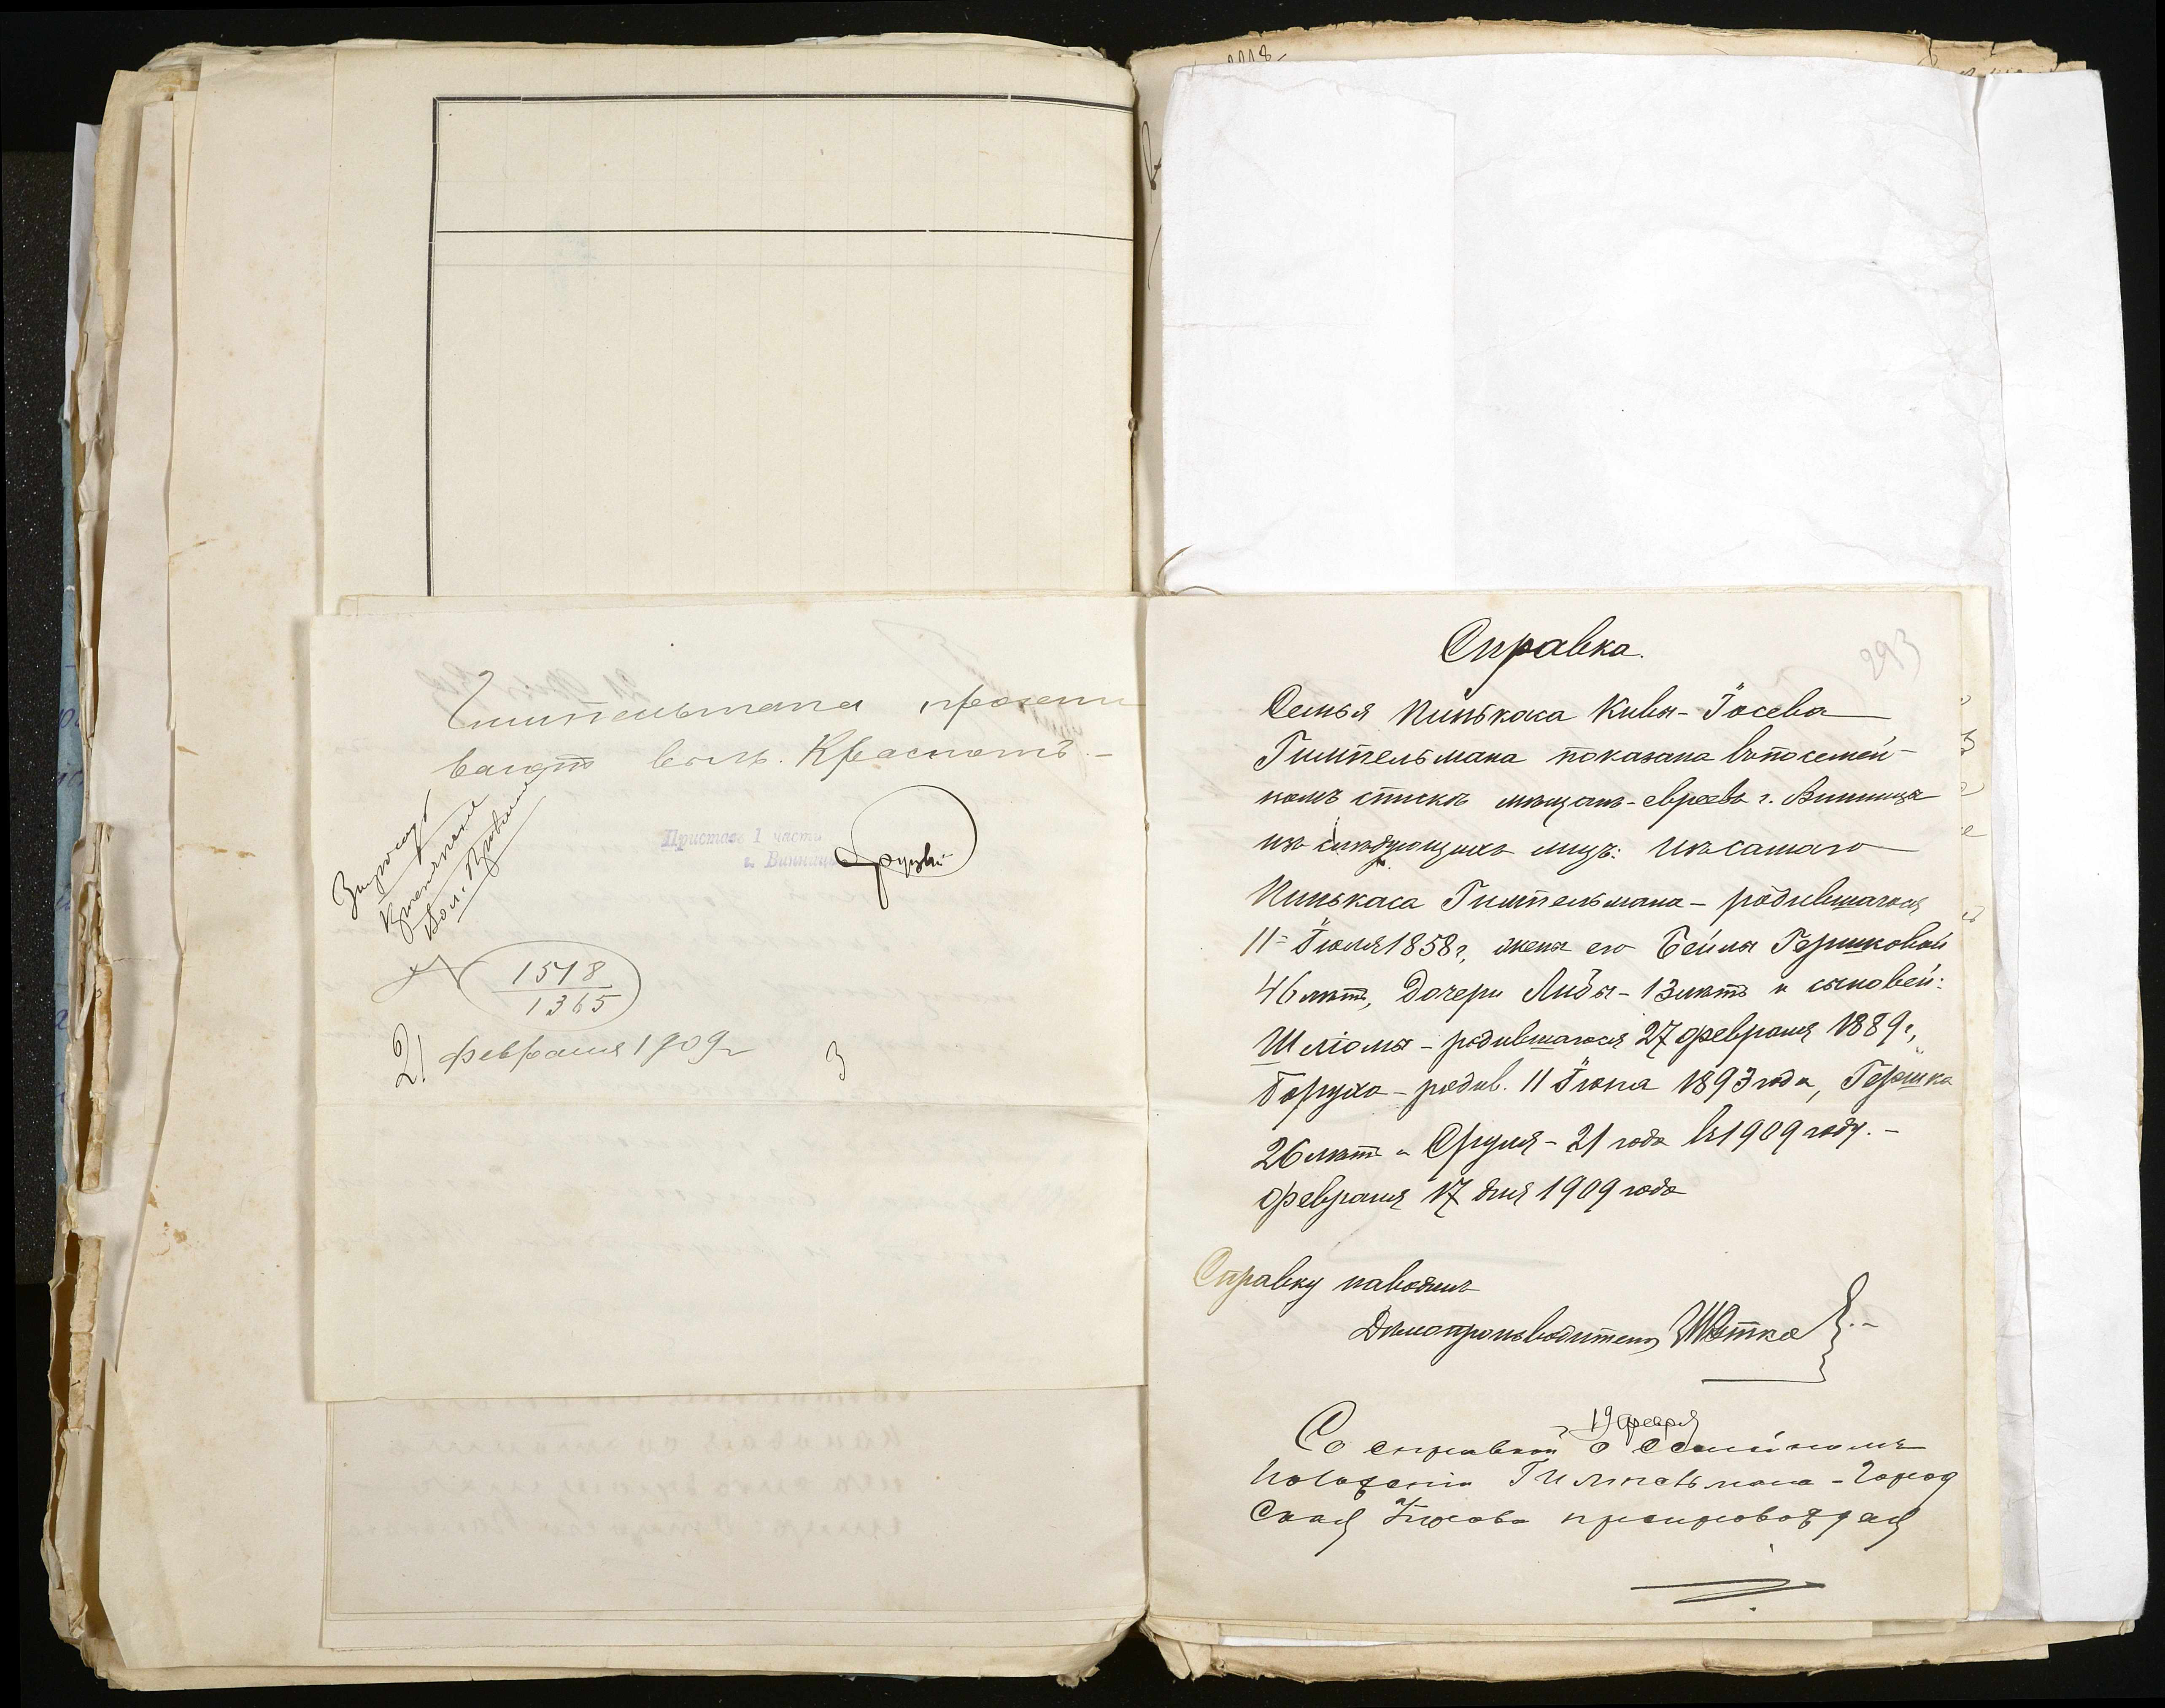 Гимпельмана прожи
ваетъ въ м. Красномъ.-
Приставъ 1 части
г. Винницы
1518
1365
21 февраля 1909 г
3
293
Справка.
Семья Пинькаса Кивы-Іосева
Гимпельмана показана въ посемей-
номъ спискѣ мѣщанъ-евреевъ г. Винницы
изъ слѣдующихъ лицъ: изъ самаго
Пинькаса Гимпельмана - родившагося
11 Іюля 1858 г, жены его Бейлы Гершковой
46 лѣтъ, дочери Либы - 13 лѣтъ и сыновей:
Шліомы - родившагося 27 февраля 1889 г,
Боруха - родив. 11 Іюня 1893 года, Гершка
26 лѣтъ и Сруля - 21 года въ 1909 году. -
февраля 17 дня 1909 года
Справку наводилъ
Дѣлопроизводитель
19 февря
Со справкой о семейномъ
положеніи Гимпельмана - Город
ская Управа препровождая